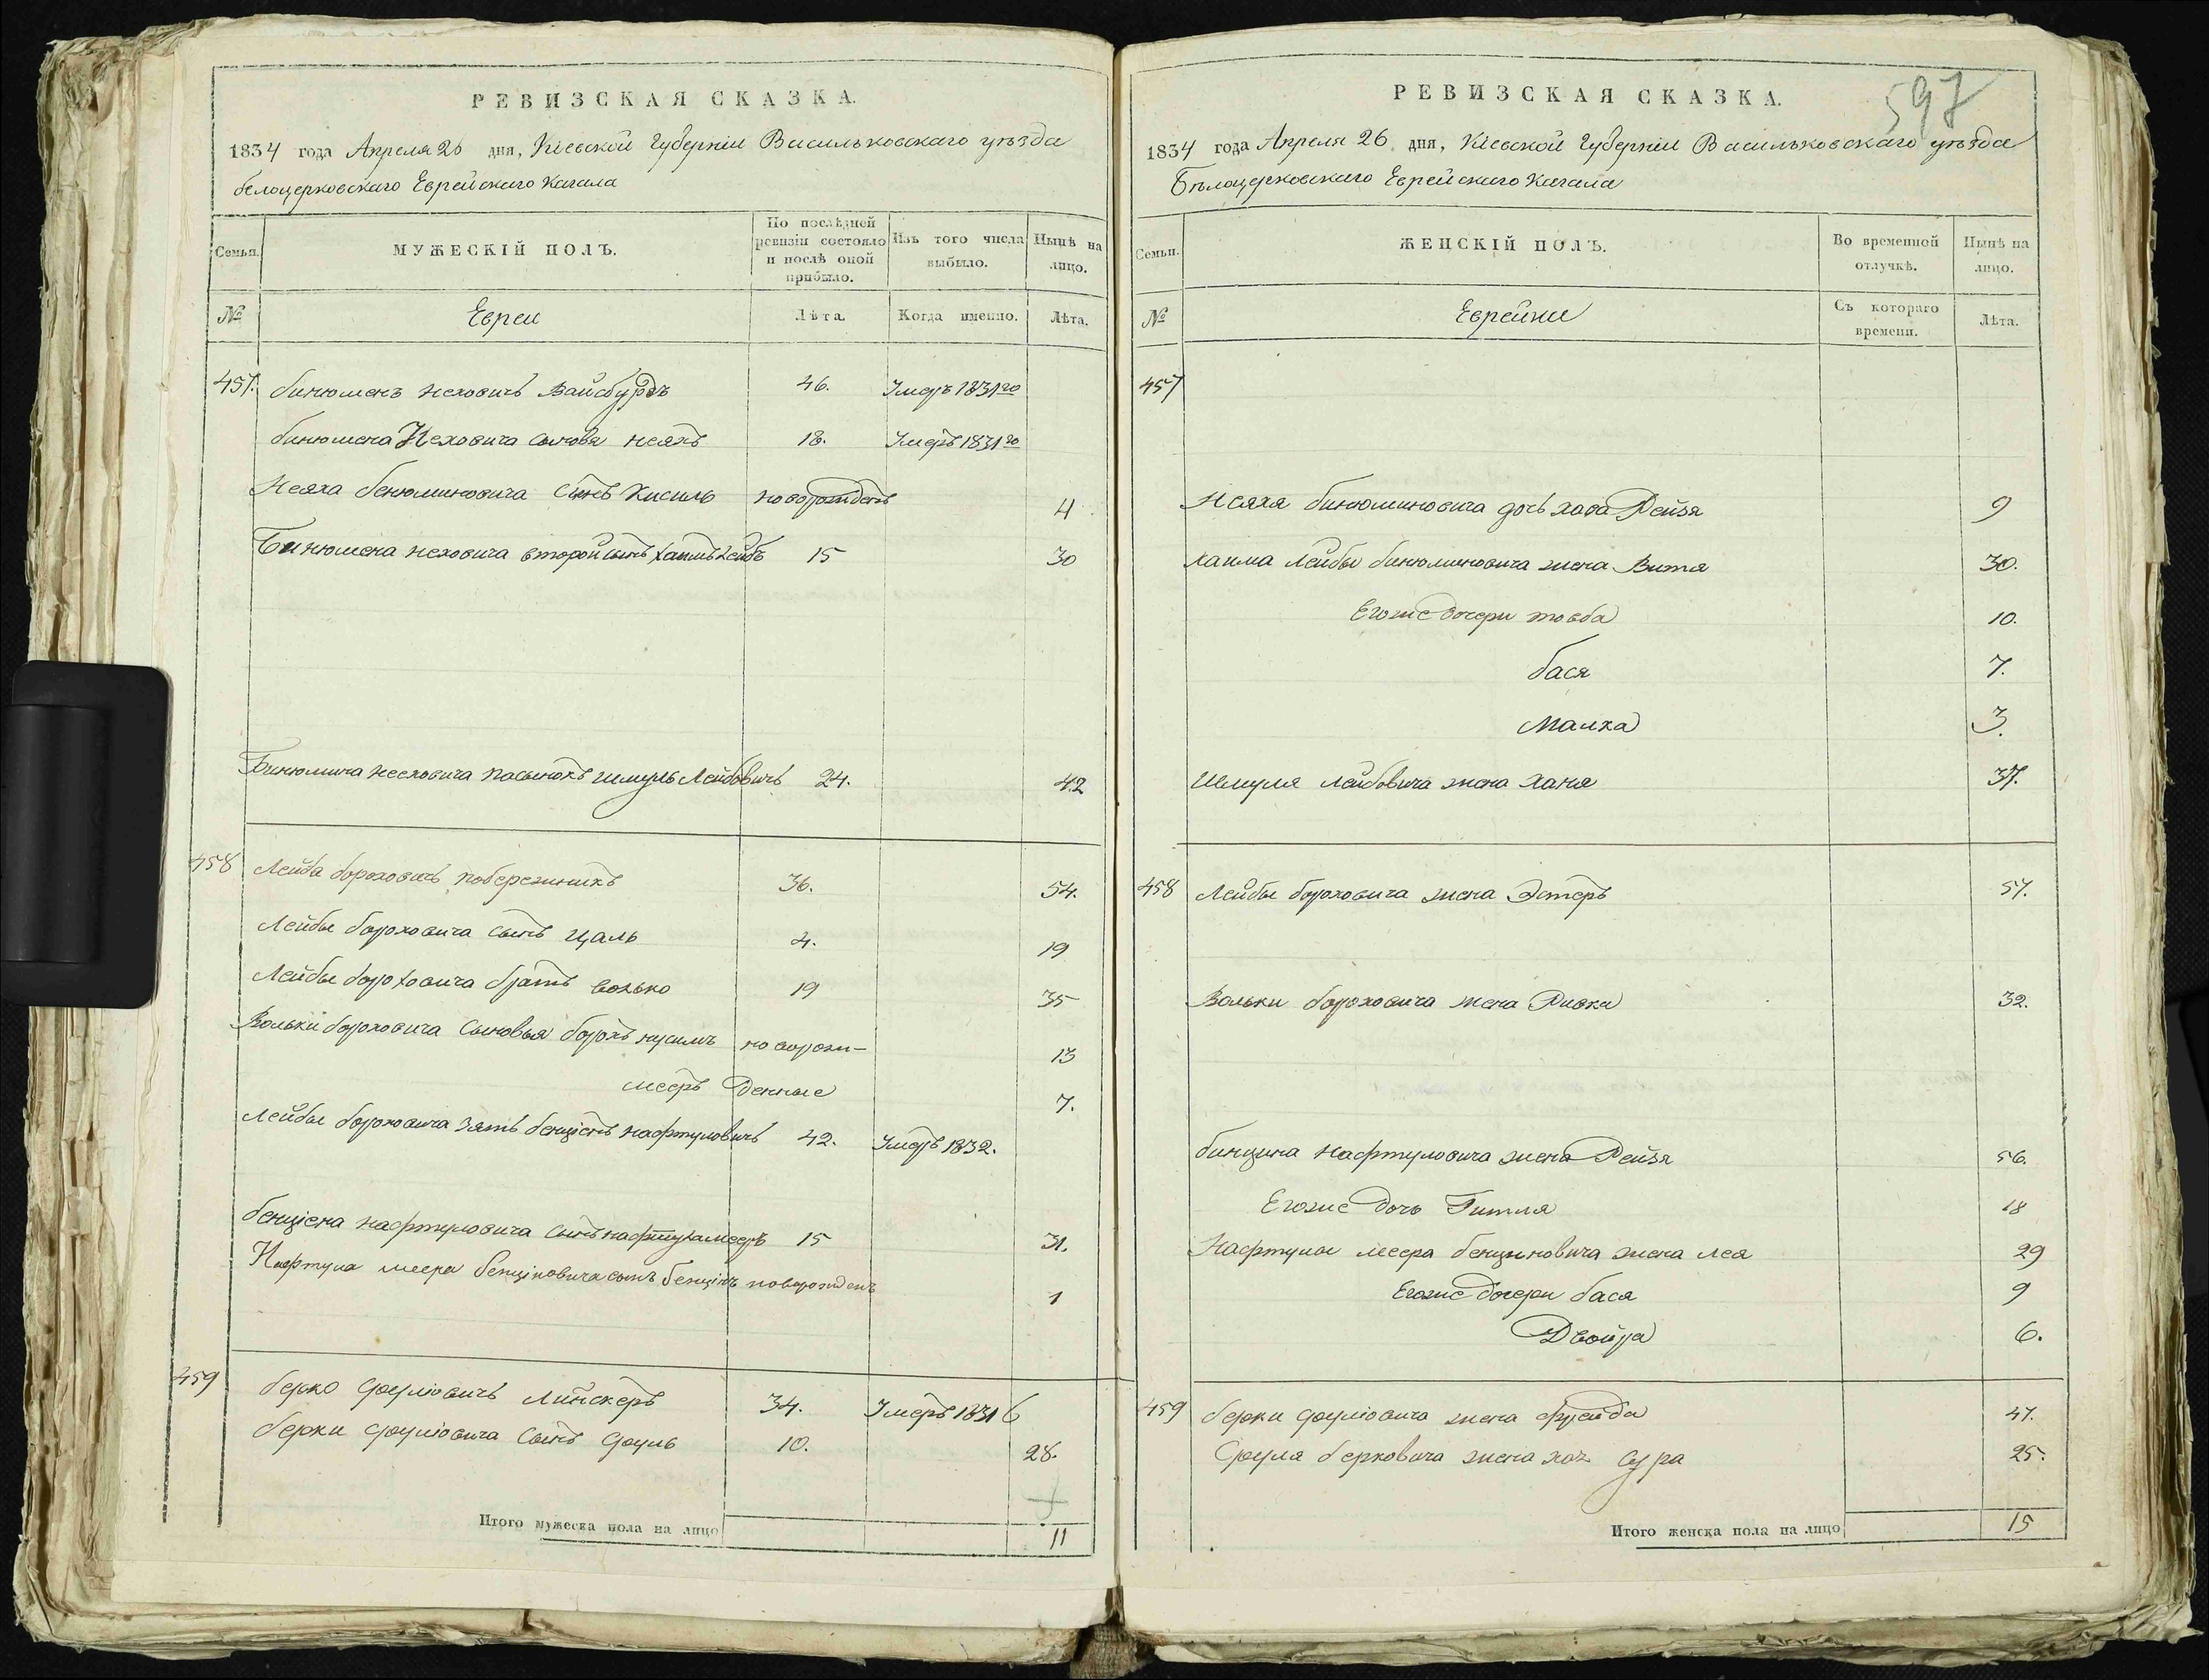 РЕВИЗСКАЯ СКАЗКА.
1834 года Апреля 26 дня, Кіевской Губерніи Васильковскаго уѣзда
белоцерковскаго Еврейскаго Кагала
Семьи.
МУЖЕСКІЙ ПОЛЪ.
По послѣдней ревизіи состояло и послѣ оной прибыло.
Изъ того числа выбыло.
Нынѣ на лицо.
№
Евреи
Лѣта.
Когда именно.
Лѣта.
457. бинюменъ неховичъ Вайсбурдъ 46. Умеръ 1831го
бинюмена Неховича сыновя неяхъ 18. Умеръ 1831го
Неяха бенюминовича сынъ Кисиль новорожденъ 4
Бинюмена неховича второй сынъ хаимъ лейбъ 15 30
Бинюмина неховича пасынокъ шмуль Лейбовичъ 24. 42
458 Лейба бороховичъ побережникъ 36. 54.
Лейбы бороховича сынъ цаль 4. 19
Лейбы бороховича братъ волько 19 35
Вольки бороховича сыновья борохъ нусимъ новорож- 13
мееръ денные 7.
Лейбы бороховича зять бенціенъ нафтуловичъ 42. Умеръ 1832.
бенціена нафтуловича сынъ нафтула мееръ 15 31.
Нафтула меера бенціновича сынъ бенціонъ новорожденъ 1
459 берко сруліовичъ Линскеръ 34. Умеръ 1831 6
берки сруліовича сынъ сруль 10. 28.
Итого мужеска пола на лицо 11
РЕВИЗСКАЯ СКАЗКА.
597
1834 года Апреля 26 дня, Кіевской Губерніи Васильковскаго уѣзда
Бѣлоцерковскаго Еврейскаго Кагала
Семьи.
ЖЕНСКІЙ ПОЛЪ.
Во временной отлучкѣ.
Нынѣ на лицо.
№
Еврейки
Съ котораго времени.
Лѣта.
457
Неяха бинюминовича дочь хава Рейзя 9
хаима Лейбы бинюминовича жена Витя 30.
Егоже дочери товба 10.
бася 7.
Малка 3.
Шмуля Лейбовича жена Ханя 37.
458 Лейбы бороховича жена Эстеръ 57.
Вольки бороховича жена Ривка 32.
бинцина Нафтуловича жена Рейзя 56.
Егоже дочь Гитля 18
Нафтулы меера бенциновича жена лея 29
Егоже дочери бася 9
Двойра 6.
459 берки сруліовича жена фрейда 47.
Сруля берковича жена хая сура 25.
Итого женска пола на лицо 15